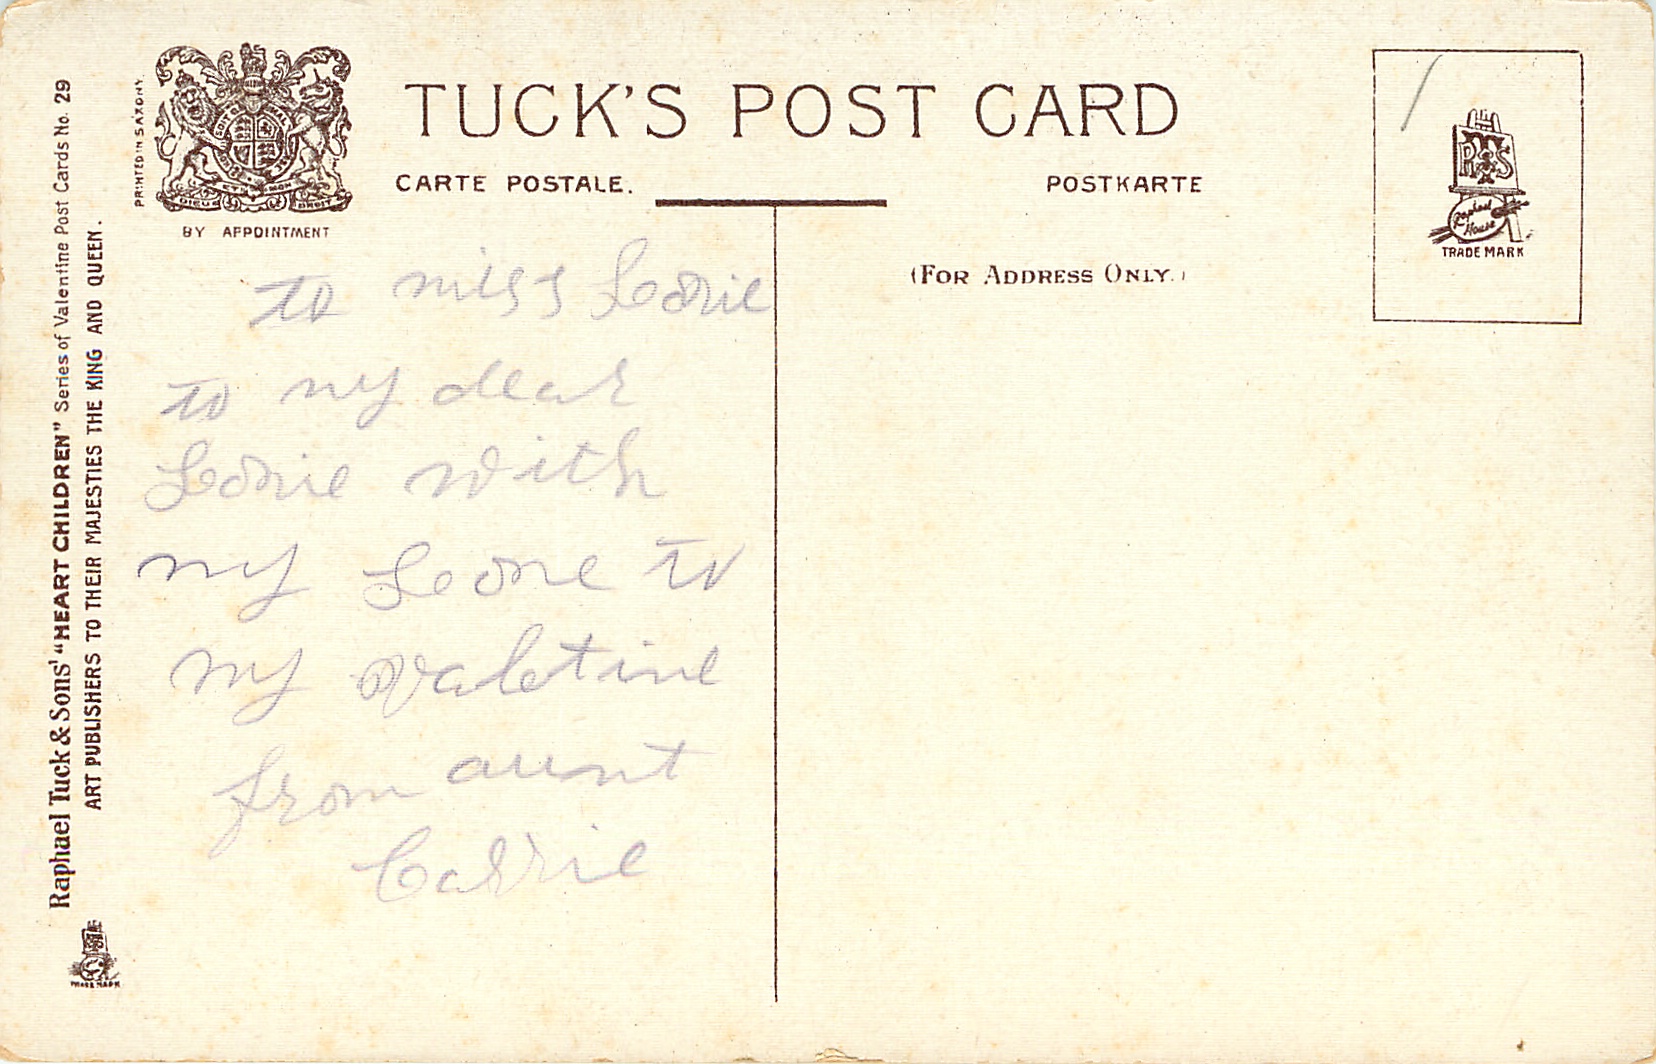 Raphael Tuck & Sons' "HEART CHILDREN" Series of Valentine Post Cards No. 29
ART PUBLISHERS TO THEIR MAJESTIES THE KING AND QUEEN.
TRADE MARK
PRINTED IN SAXONY
DIEU ET MON DROIT
BY APPOINTMENT
TUCK'S POST CARD
CARTE POSTALE.
POSTKARTE
(FOR ADDRESS ONLY.)
RTS
Raphael
House
TRADE MARK
to miss Leonie
to my dear
Leonie with
my Leone to
my valetine
from aunt
Carrie